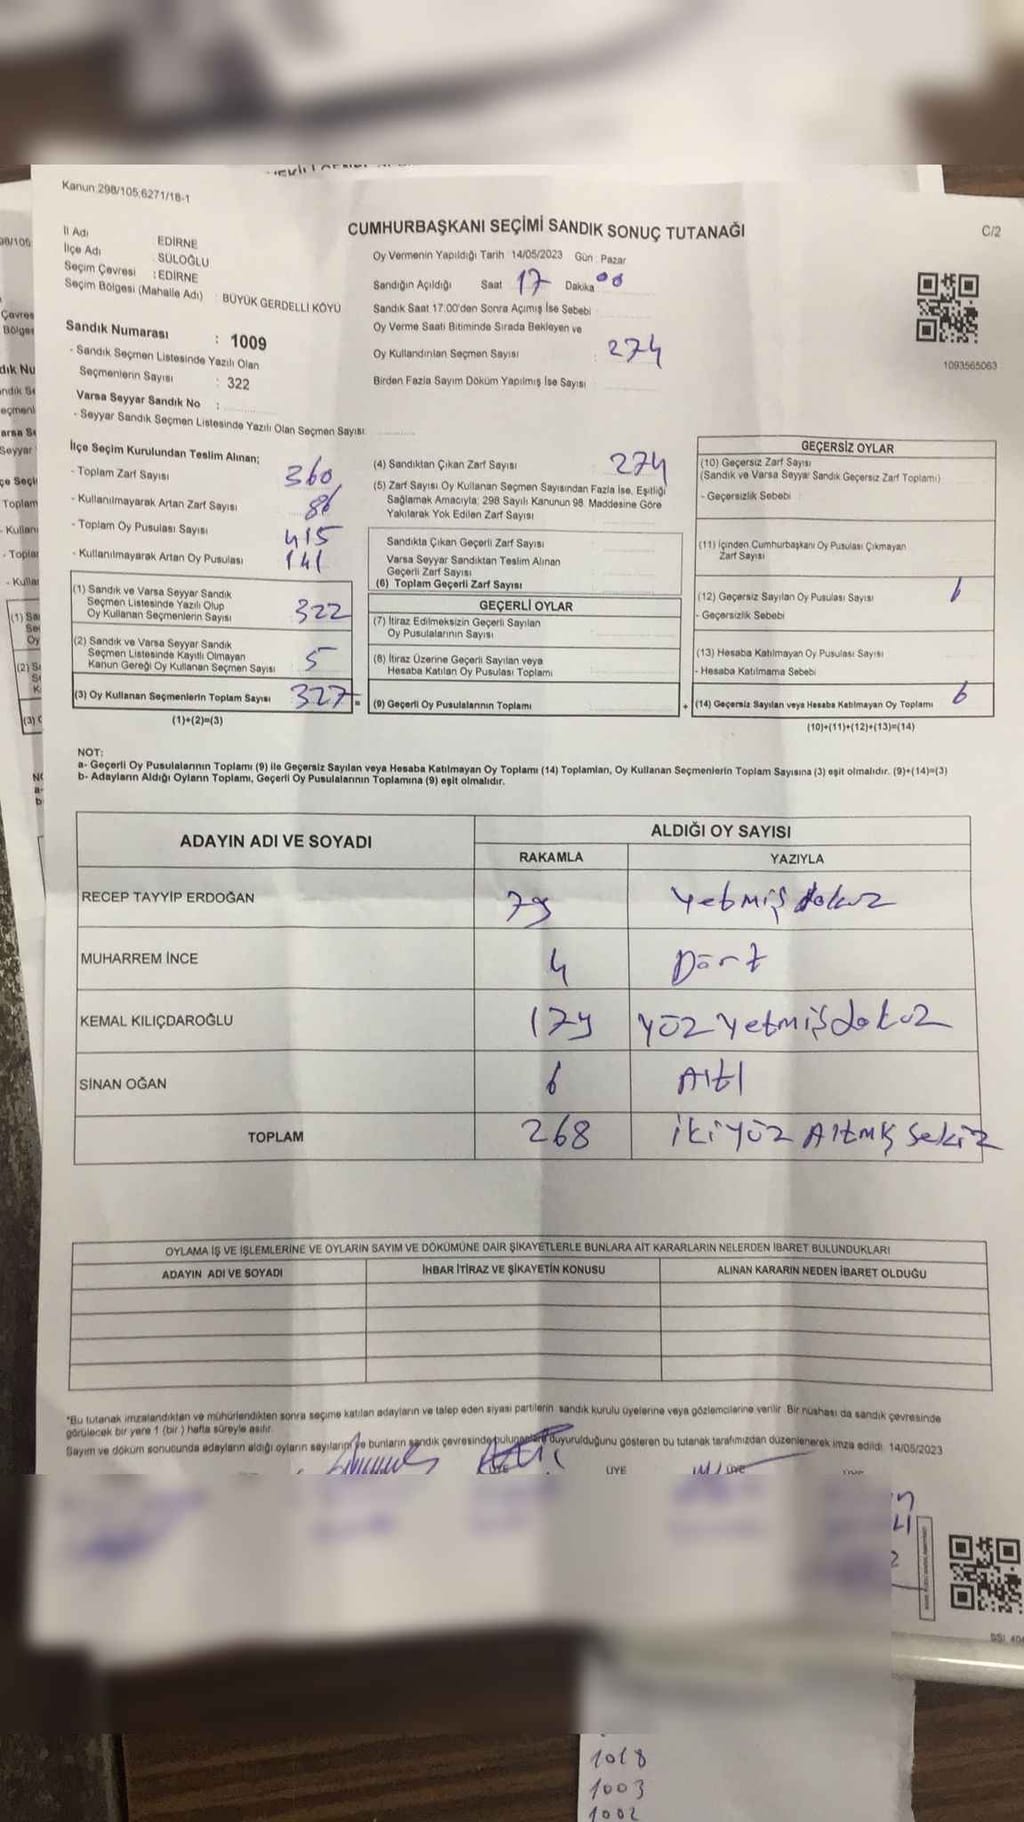 Kanun:298/105,6271/18-1
CUMHURBAŞKANI SEÇİMİ SANDIK SONUÇ TUTANAĞI
C/2
İl Adı EDİRNE
İlçe Adı SÜLOĞLU
Seçim Çevresi : EDİRNE
Seçim Bölgesi (Mahalle Adı) : BÜYÜK GERDELLİ KÖYÜ
Sandık Numarası : 1009
- Sandık Seçmen Listesinde Yazılı Olan
Seçmenlerin Sayısı : 322
Varsa Seyyar Sandık No :
- Seyyar Sandık Seçmen Listesinde Yazılı Olan Seçmen Sayısı:
Oy Vermenin Yapıldığı Tarih :14/05/2023 Gün : Pazar
Sandığın Açıldığı Saat 17 Dakika 00
Sandık Saat 17:00'den Sonra Açımış İse Sebebi
Oy Verme Saati Bitiminde Sırada Bekleyen ve
Oy Kullandırılan Seçmen Sayısı : 274
Birden Fazla Sayım Döküm Yapılmış İse Sayısı
1093565063
İlçe Seçim Kurulundan Teslim Alınan;
- Toplam Zarf Sayısı 360
- Kullanılmayarak Artan Zarf Sayısı 86
- Toplam Oy Pusulası Sayısı 415
- Kullanılmayarak Artan Oy Pusulası 141
(1) Sandık ve Varsa Seyyar Sandık
Seçmen Listesinde Yazılı Olup
Oy Kullanan Seçmenlerin Sayısı 322
(2) Sandık ve Varsa Seyyar Sandık
Seçmen Listesinde Kayıtlı Olmayan
Kanun Gereği Oy Kullanan Seçmen Sayısı 5
(3) Oy Kullanan Seçmenlerin Toplam Sayısı 327 =
(1)+(2)=(3)
(4) Sandıktan Çıkan Zarf Sayısı 274
(5) Zarf Sayısı Oy Kullanan Seçmen Sayısından Fazla İse, Eşitliği
Sağlamak Amacıyla; 298 Sayılı Kanunun 98. Maddesine Göre
Yakılarak Yok Edilen Zarf Sayısı
Sandıkta Çıkan Geçerli Zarf Sayısı
Varsa Seyyar Sandıktan Teslim Alınan
Geçerli Zarf Sayısı
(6) Toplam Geçerli Zarf Sayısı
GEÇERLİ OYLAR
(7) İtiraz Edilmeksizin Geçerli Sayılan
Oy Pusulalarının Sayısı
(8) İtiraz Üzerine Geçerli Sayılan veya
Hesaba Katılan Oy Pusulası Toplamı
(9) Geçerli Oy Pusulalarının Toplamı +
GEÇERSİZ OYLAR
(10) Geçersiz Zarf Sayısı
(Sandık ve Varsa Seyyar Sandık Geçersiz Zarf Toplamı)
- Geçersizlik Sebebi
(11) İçinden Cumhurbaşkanı Oy Pusulası Çıkmayan
Zarf Sayısı
(12) Geçersiz Sayılan Oy Pusulası Sayısı 6
- Geçersizlik Sebebi
(13) Hesaba Katılmayan Oy Pusulası Sayısı
- Hesaba Katılmama Sebebi
(14) Geçersiz Sayılan veya Hesaba Katılmayan Oy Toplamı 6
(10)+(11)+(12)+(13)=(14)
NOT:
a- Geçerli Oy Pusulalarının Toplamı (9) ile Geçersiz Sayılan veya Hesaba Katılmayan Oy Toplamı (14) Toplamları, Oy Kullanan Seçmenlerin Toplam Sayısına (3) eşit olmalıdır. (9)+(14)=(3)
b- Adayların Aldığı Oyların Toplamı, Geçerli Oy Pusulalarının Toplamına (9) eşit olmalıdır.
ADAYIN ADI VE SOYADI ALDIĞI OY SAYISI
RAKAMLA YAZIYLA
RECEP TAYYİP ERDOĞAN 79 Yetmiş dokuz
MUHARREM İNCE 4 Dört
KEMAL KILIÇDAROĞLU 179 Yüz Yetmiş dokuz
SİNAN OĞAN 6 Altı
TOPLAM 268 İki yüz Altmış sekiz
OYLAMA İŞ VE İŞLEMLERİNE VE OYLARIN SAYIM VE DÖKÜMÜNE DAİR ŞİKAYETLERLE BUNLARA AİT KARARLARIN NELERDEN İBARET BULUNDUKLARI
ADAYIN ADI VE SOYADI İHBAR İTİRAZ VE ŞİKAYETİN KONUSU ALINAN KARARIN NEDEN İBARET OLDUĞU
*Bu tutanak imzalandıktan ve mühürlendikten sonra seçime katılan adayların ve talep eden siyasi partilerin sandık kurulu üyelerine veya gözlemcilerine verilir. Bir nüshası da sandık çevresinde
görülecek bir yere 1 (bir) hafta süreyle asılır.
Sayım ve döküm sonucunda adayların aldığı oyların sayılarını ve bunların sandık çevresinde bulunanlara duyurulduğunu gösteren bu tutanak tarafımızdan düzenlenerek imza edildi. 14/05/2023
ÜYE ÜYE
1018
1003
1002